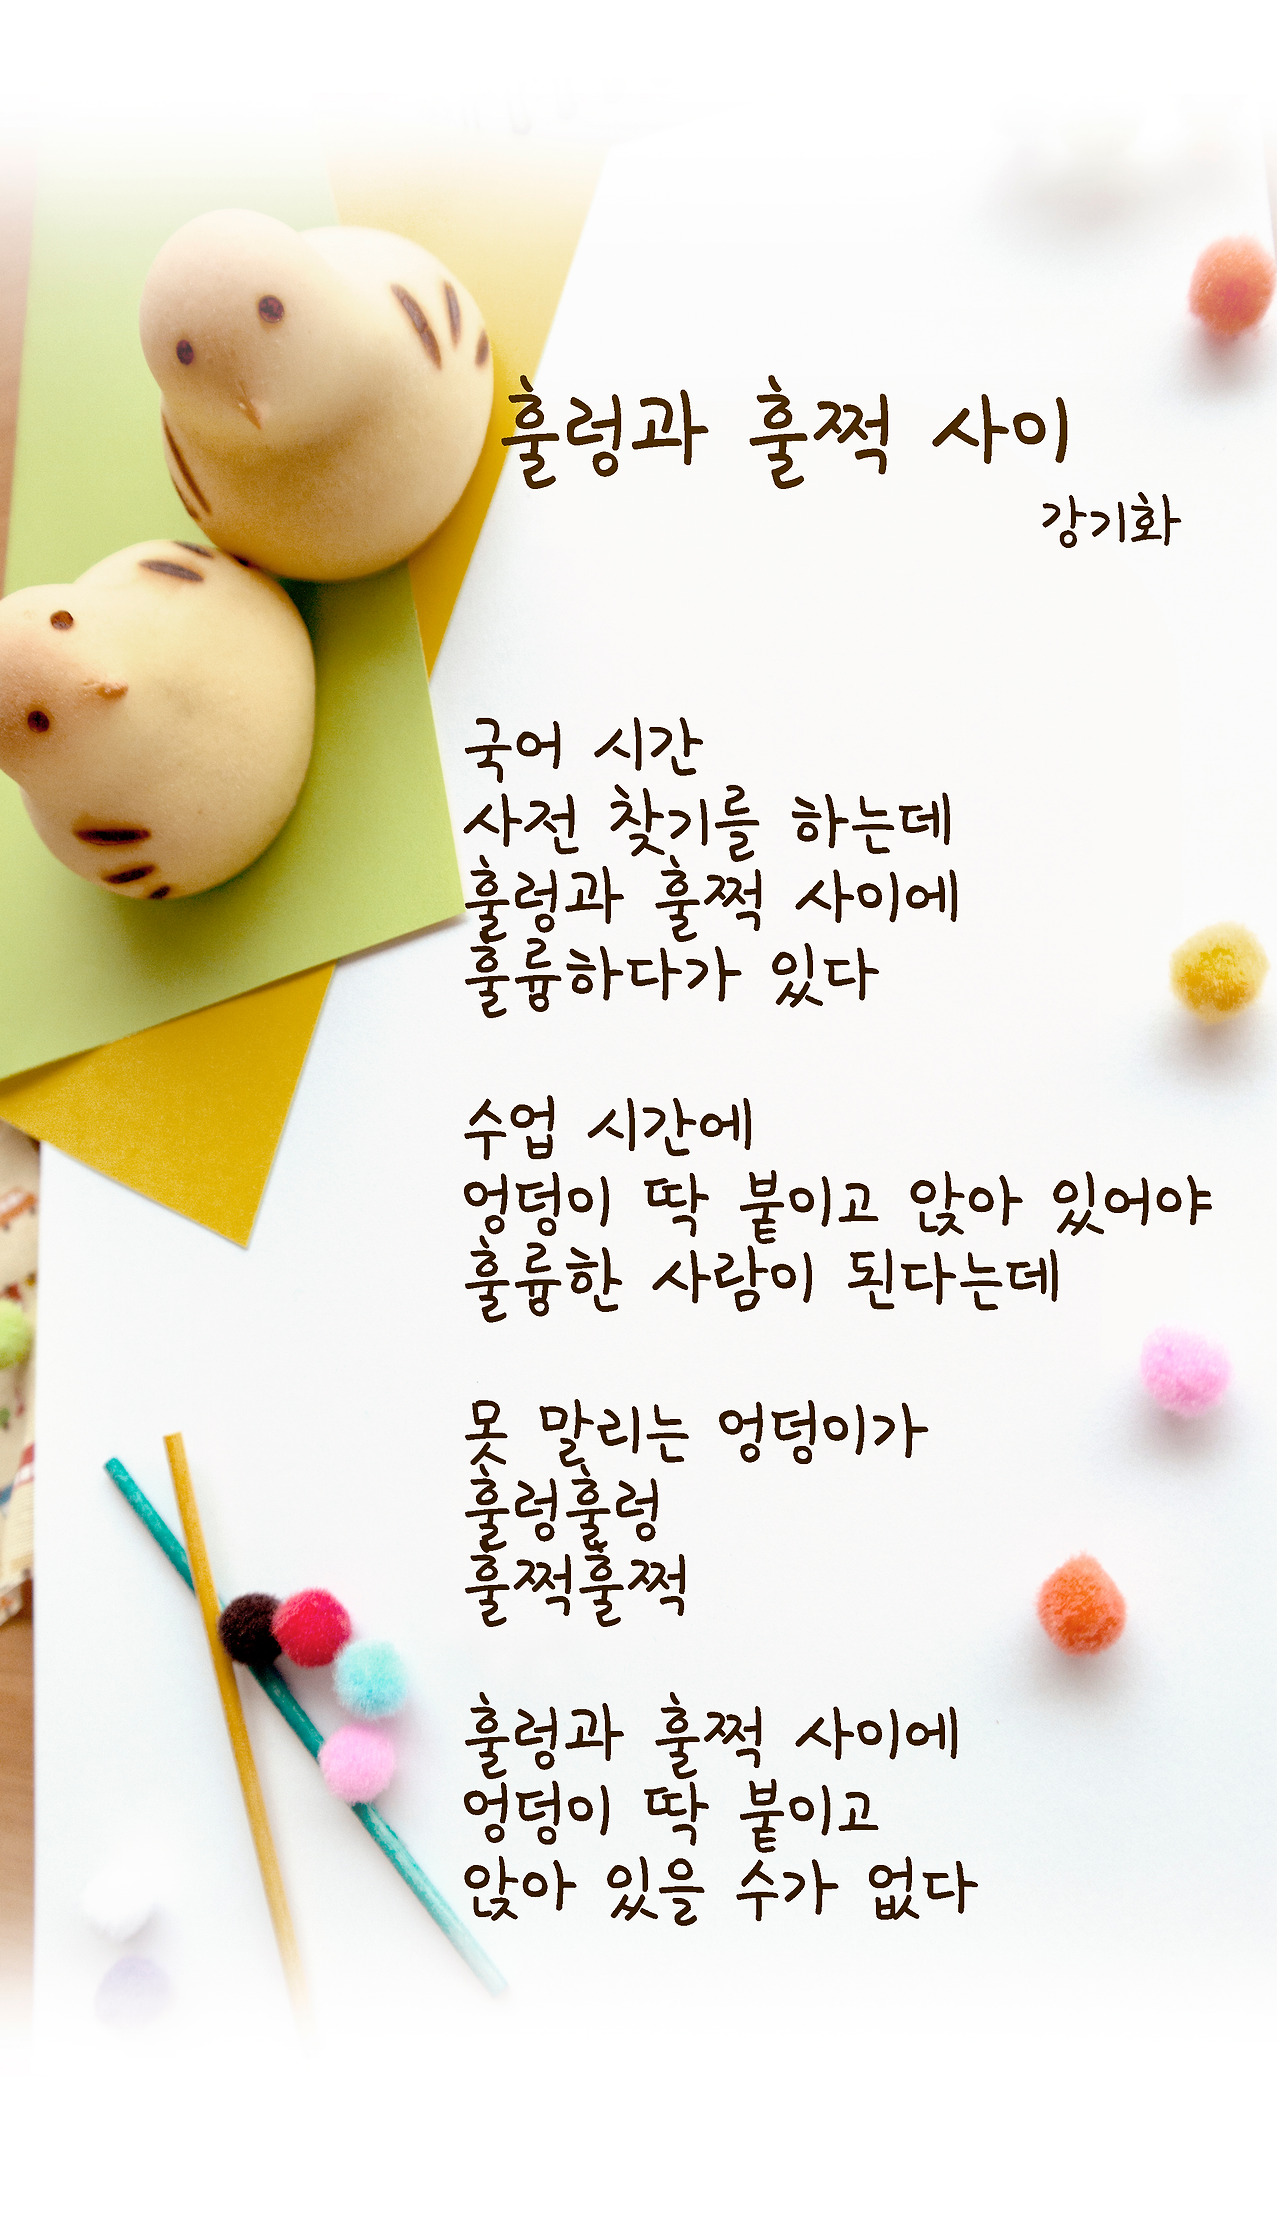 훌렁과 훌쩍 사이
강기화
국어 시간
사전 찾기를 하는데
훌렁과 훌쩍 사이에
훌륭하다가 있다
수업 시간에
엉덩이 딱 붙이고 앉아 있어야
훌륭한 사람이 된다는데
못 말리는 엉덩이가
훌렁훌렁
훌쩍훌쩍
훌렁과 훌쩍 사이에
엉덩이 딱 붙이고
앉아 있을 수가 없다